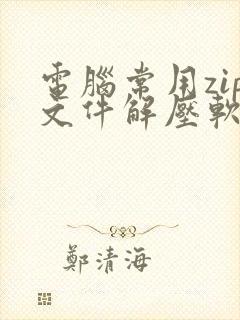 電腦常用zip
文件解壓軟
鄭清海